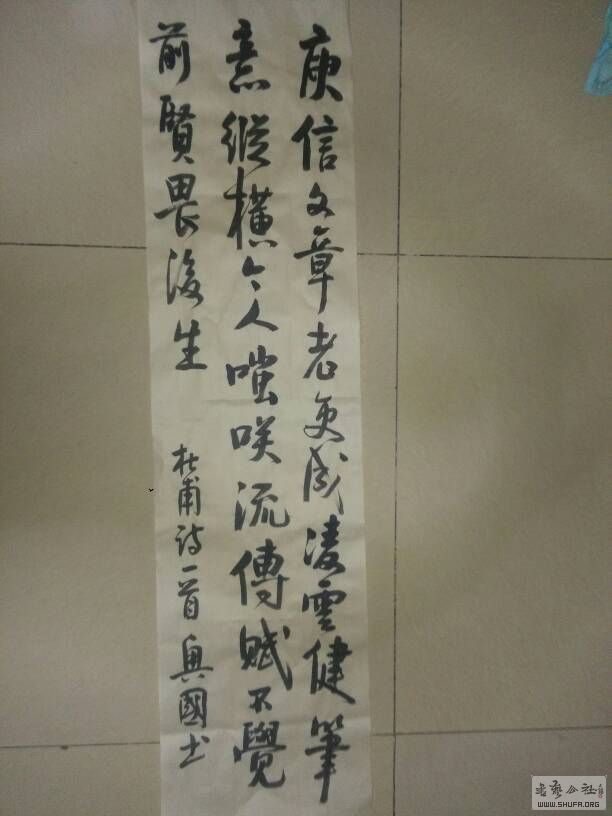 庾信文章老更成凌雲健筆
意縱橫今人嗤咲流傳賦不覺
前賢畏後生
杜甫詩一首 興國书
书艺公社
WWW.SHUFA.ORG